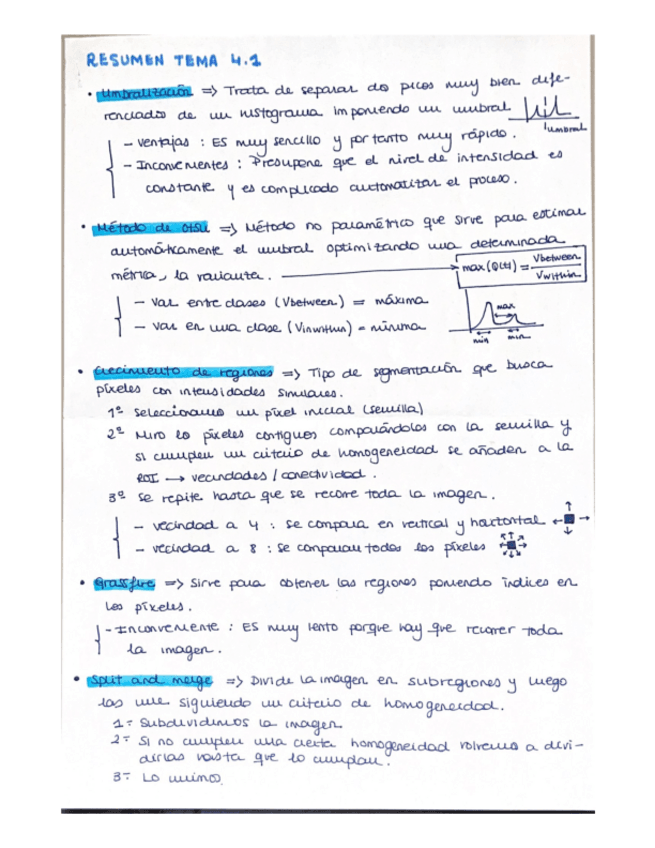 RESUMEN TEMA 4.1
• Umbralización => Trata de separar dos picos muy bien dife-
renciados de un histograma imponiendo un umbral
umbral
- Ventajas : ES muy sencillo y por tanto muy rápido.
- Inconvenientes : Presupone que el nivel de intensidad es
constante y es complicado automatizar el proceso.
• Método de Otsu => Método no paramétrico que sirve para estimar
automáticamente el umbral optimizando una determinada
métrica, la varianza. → max(Q(t)) = Vbetween / Vwithin
- Var entre clases (Vbetween) = máxima
- Var en una clase (Vinwithin) = mínima
max
min min
• Crecimiento de regiones => Tipo de segmentación que busca
píxeles con intensidades similares.
1º Seleccionamos un píxel inicial (semilla)
2º Miro los píxeles contiguos comparándolos con la semilla y
si cumplen un criterio de homogeneidad se añaden a la
ROI → vecindades / conectividad.
3º Se repite hasta que se recorre toda la imagen.
- vecindad a 4 : se compara en vertical y horizontal
- vecindad a 8 : se comparan todos los píxeles
• Grassfire => Sirve para obtener las regiones poniendo índices en
los píxeles.
- Inconveniente : ES muy lento porque hay que recorrer toda
la imagen.
• Split and merge => Divide la imagen en subregiones y luego
las une siguiendo un criterio de homogeneidad.
1= Subdividimos la imagen
2= Si no cumplen una cierta homogeneidad volvemos a divi-
dirlas hasta que lo cumplan.
3= Lo unimos